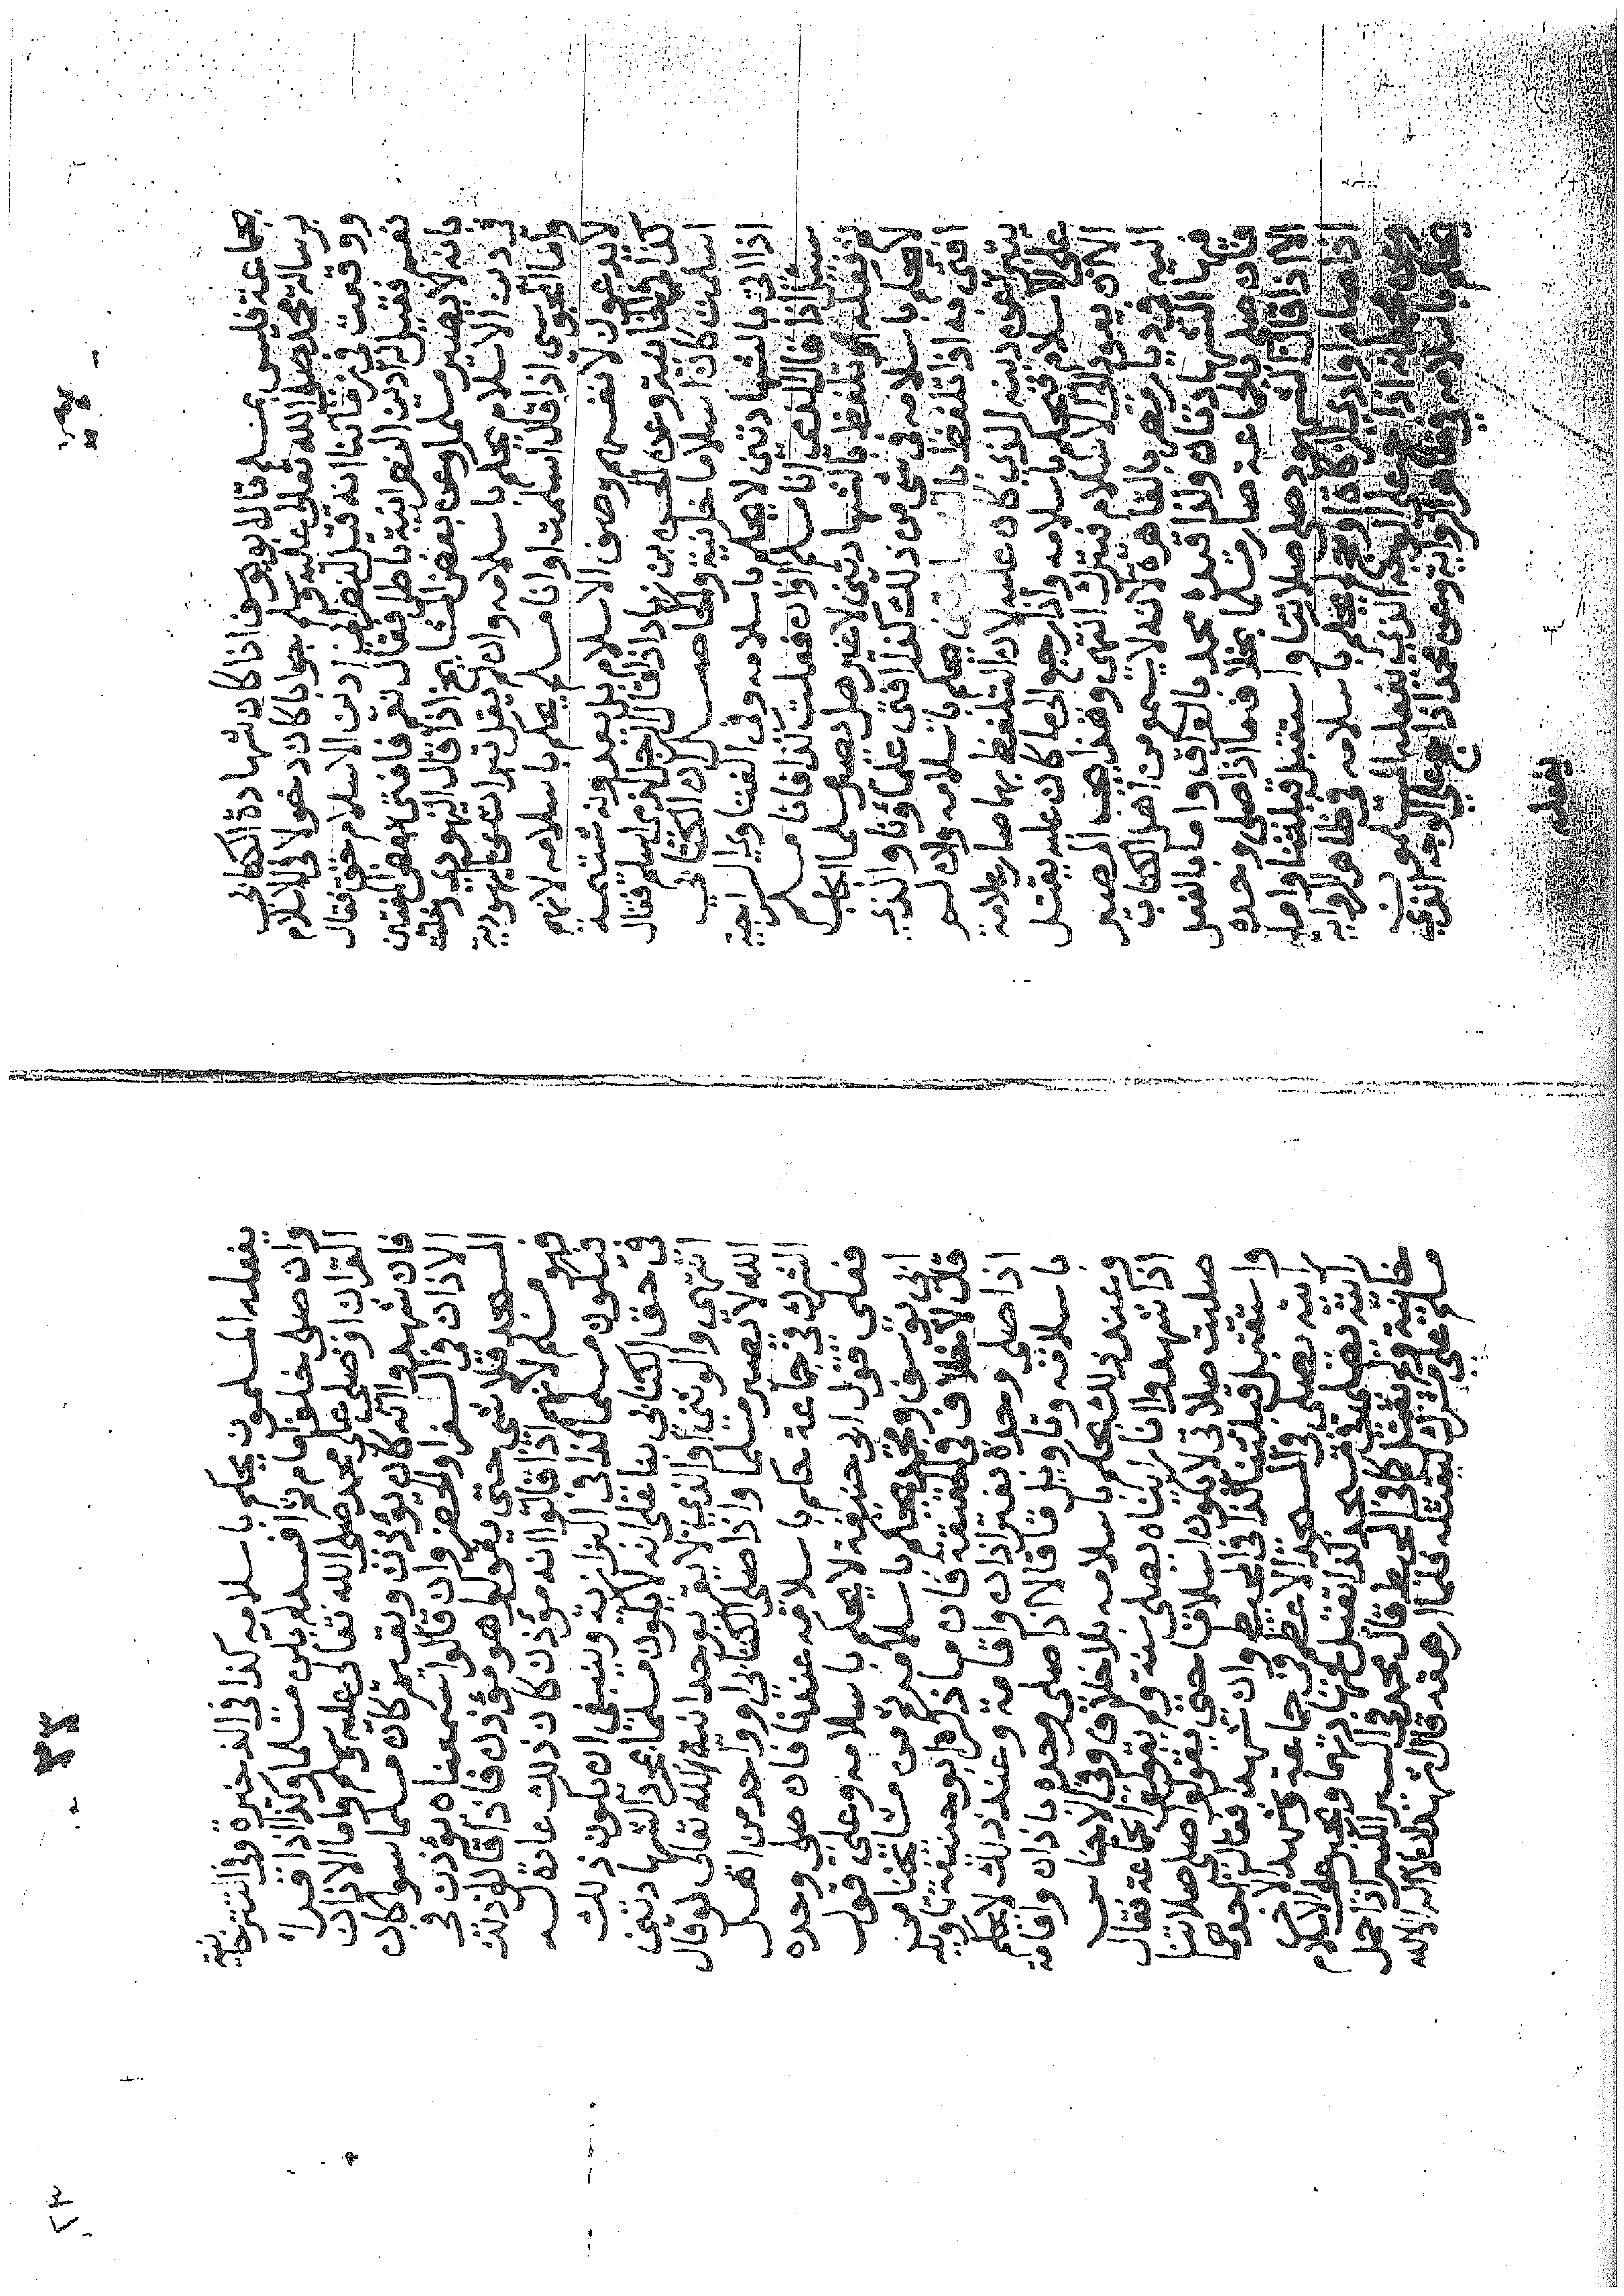 جماعة فليس بمسلم قال ابو يوسف اذا كان شهادة الكتابي
برسالة محمد صلى الله تعالى عليه وسلم جوابا كان دخولا في الاسلام
ووقعت في زماننا انه قيل لنصراني ادين الاسلام حق فقال
نعم فقيل له ادين النصرانية باطل فقال نعم فافتى بعض المفتين
بانه لا يصير مسلما وعن بعض المشايخ اذا قال اليهودي دخلت
في دين الاسلام يحكم باسلامه وان لم يقل تبرات عن اليهودية
واما المجوسي اذا قال اسلمت او انا مسلم يحكم باسلامه لانهم
لا يدعون لانفسهم وصف الاسلام بل يعدونه شتيمة
كذا في الخانية وعن الحسن بن زياد اذا قال الرجل لذمي اسلم فقال
اسلمت كان اسلاما خانية والحاصل ان الكتابي
اذا اتى بالشهادتين لا يحكم باسلامه وفي الفتاوى السراجية
سئل اذا قال الذمي انا مسلم او ان فعلت كذا فانا مسلم
ثم فعله او تلفظ بالشهادتين لا غير هل يصير مسلما اجاب
لا يحكم باسلامه في شئ من ذلك كذا افتى علماؤنا والذي
افتي به اذا تلفظ بالشهادتين يحكم باسلامه وان لم
يتبرا عن دينه الذي كان عليه لان التلفظ بهما صار علامة
على الاسلام فيحكم باسلامه واذا رجع الى ما كان عليه يقتل
الا ان يعود الى الاسلام فيترك انتهى وهذا يجب المصير
اليه في ديار مصر بالقاهرة لانه لا يسمع من اهل الكتاب
فيها الشهادتان ولذا قيده محمد بالعراق واما بالفعل
فان صلى بالجماعة صار مسلما بخلاف ما اذا صلى وحده
الا اذا قال الشهود صلى صلاتنا واستقبل قبلتنا واما
اذا صام او ادى الزكاة او حج لم يحكم باسلامه في ظاهر الرواية
وعن محمد انه اذا حج على الوجه الذي يفعله المسلمون
يحكم باسلامه وفي رواية وعن محمد اذا حج على الوجه الذي
يفعله
يفعله المسلمون يحكم باسلامه كذا في الذخيرة وفي التترخانية
وان صلى خلف امام ثم افسد لم يكن مسلما وكذا اذا قرا
القران او صلى على محمد صلى الله تعالى عليه وسلم واما الاذان
فان شهدوا انه كان يؤذن ويقيم كان مسلما سوا كان
الاذان في السفر والحضر وان قالوا سمعناه يؤذن في
المسجد فلا شئ حتى يقولوا هو مؤذن فاذا قالوا ذلك
فهو مسلم لانهم اذا قالوا انه مؤذن كان ذلك عادة له
فيكون مسلما كذا في البزازية وينبغي ان يكون ذلك
في حق الكتابي بنا على انه لا يكون مسلما بمجرد الشهادتين
انتهى والوثني او الذي لا يقر بوحدانية الله تعالى لو قال
الله لا يصير مسلما واذا صلى الكتابي او واحد من اهل
الشرك في جماعة حكم باسلامه عندنا فان صلى وحده
فعلى قول ابي حنيفة لا يحكم باسلامه وعلى قول
ابي يوسف ومحمد يحكم باسلامه ثم من مشايخنا من
قال لا خلاف في الحقيقة فان ما ذكره ابو حنيفة تاويله
اذا صلى وحده بغير اذان واقامة وعند ذلك لا يحكم
باسلامه وتاويل ما قالا اذا صلى وحده باذان واقامة
وعند ذلك يحكم باسلامه بلا خلاف وفي الاجناس
اذا شهدوا انا رايناه يصلي سنة ولم يقولوا بجماعة فقال
صليت صلاتي لا يكون اسلاما حتى يقولوا صلى صلاتنا
واستقبل قبلتنا كذا في المحيط وان شهد فقال احدهما
رايته يصلي في المسجد الاعظم في جماعة وشهد الاخر
رايته يصلي في مسجد كذا تقبل شهادتهما ويجبر على الاسلام
خانية ولم يقتل كافي المحيط قال محمد في السير الكبير اذا حمل
مسلم على مشرك ليقتله فلما ارهقه قال اشهد ان لا اله الا الله